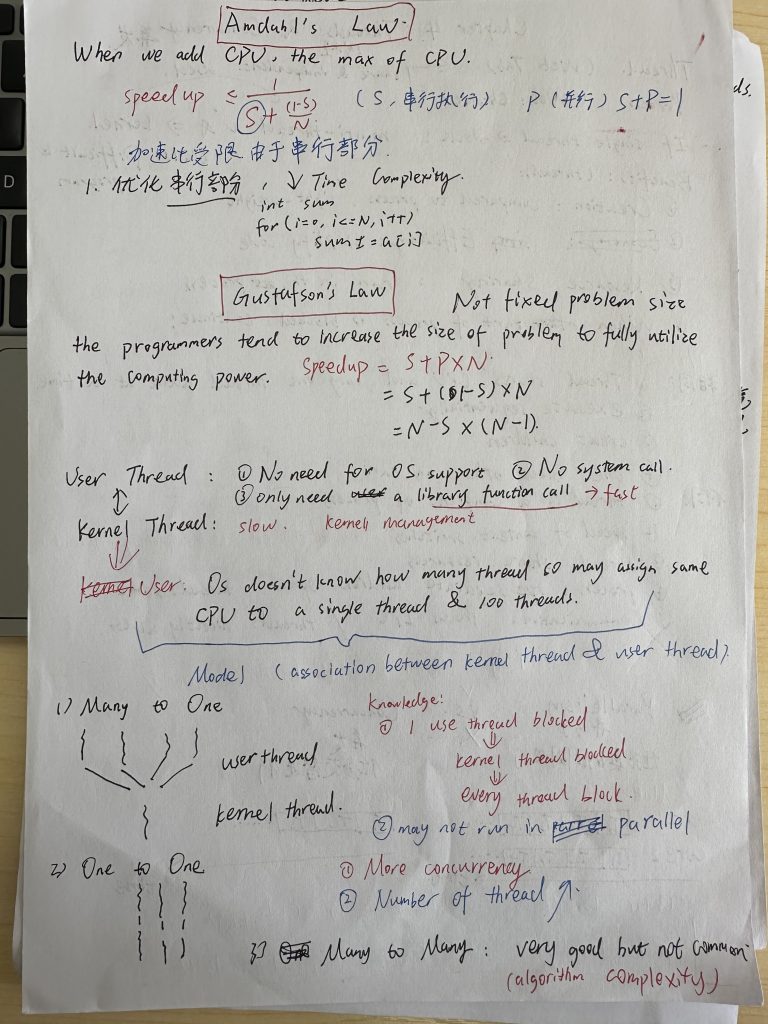 Amdahl's Law.
When we add CPU, the max of CPU.
speed up ≤ 1 / (S + (1-S)/N) (S, 串行执行) P (并行) S+P=1
加速比受限由于串行部分.
1. 优化串行部分, ↓ Time Complexity.
int sum
for (i=0, i<=N, i++)
sum += a[i]
Gustafson's Law
Not fixed problem size
the programmers tend to increase the size of problem to fully utilize
the computing power. Speedup = S+P×N.
= S+(1-S)×N
= N-S×(N-1).
User Thread : ① No need for OS support ② No system call.
③ only need a library function call → fast
↕
Kernel Thread: slow. kernel management
User: Os doesn't know how many thread so may assign same
CPU to a single thread & 100 threads.
Model (association between kernel thread & user thread).
1) Many to One
user thread
kernel thread.
Knowledge:
① 1 use thread blocked
⇓
kernel thread blocked
⇓
every thread block.
② may not run in parallel
2) One to One
① More concurrency
② Number of thread ↗
3) Many to Many : very good but not common
(algorithm complexity)